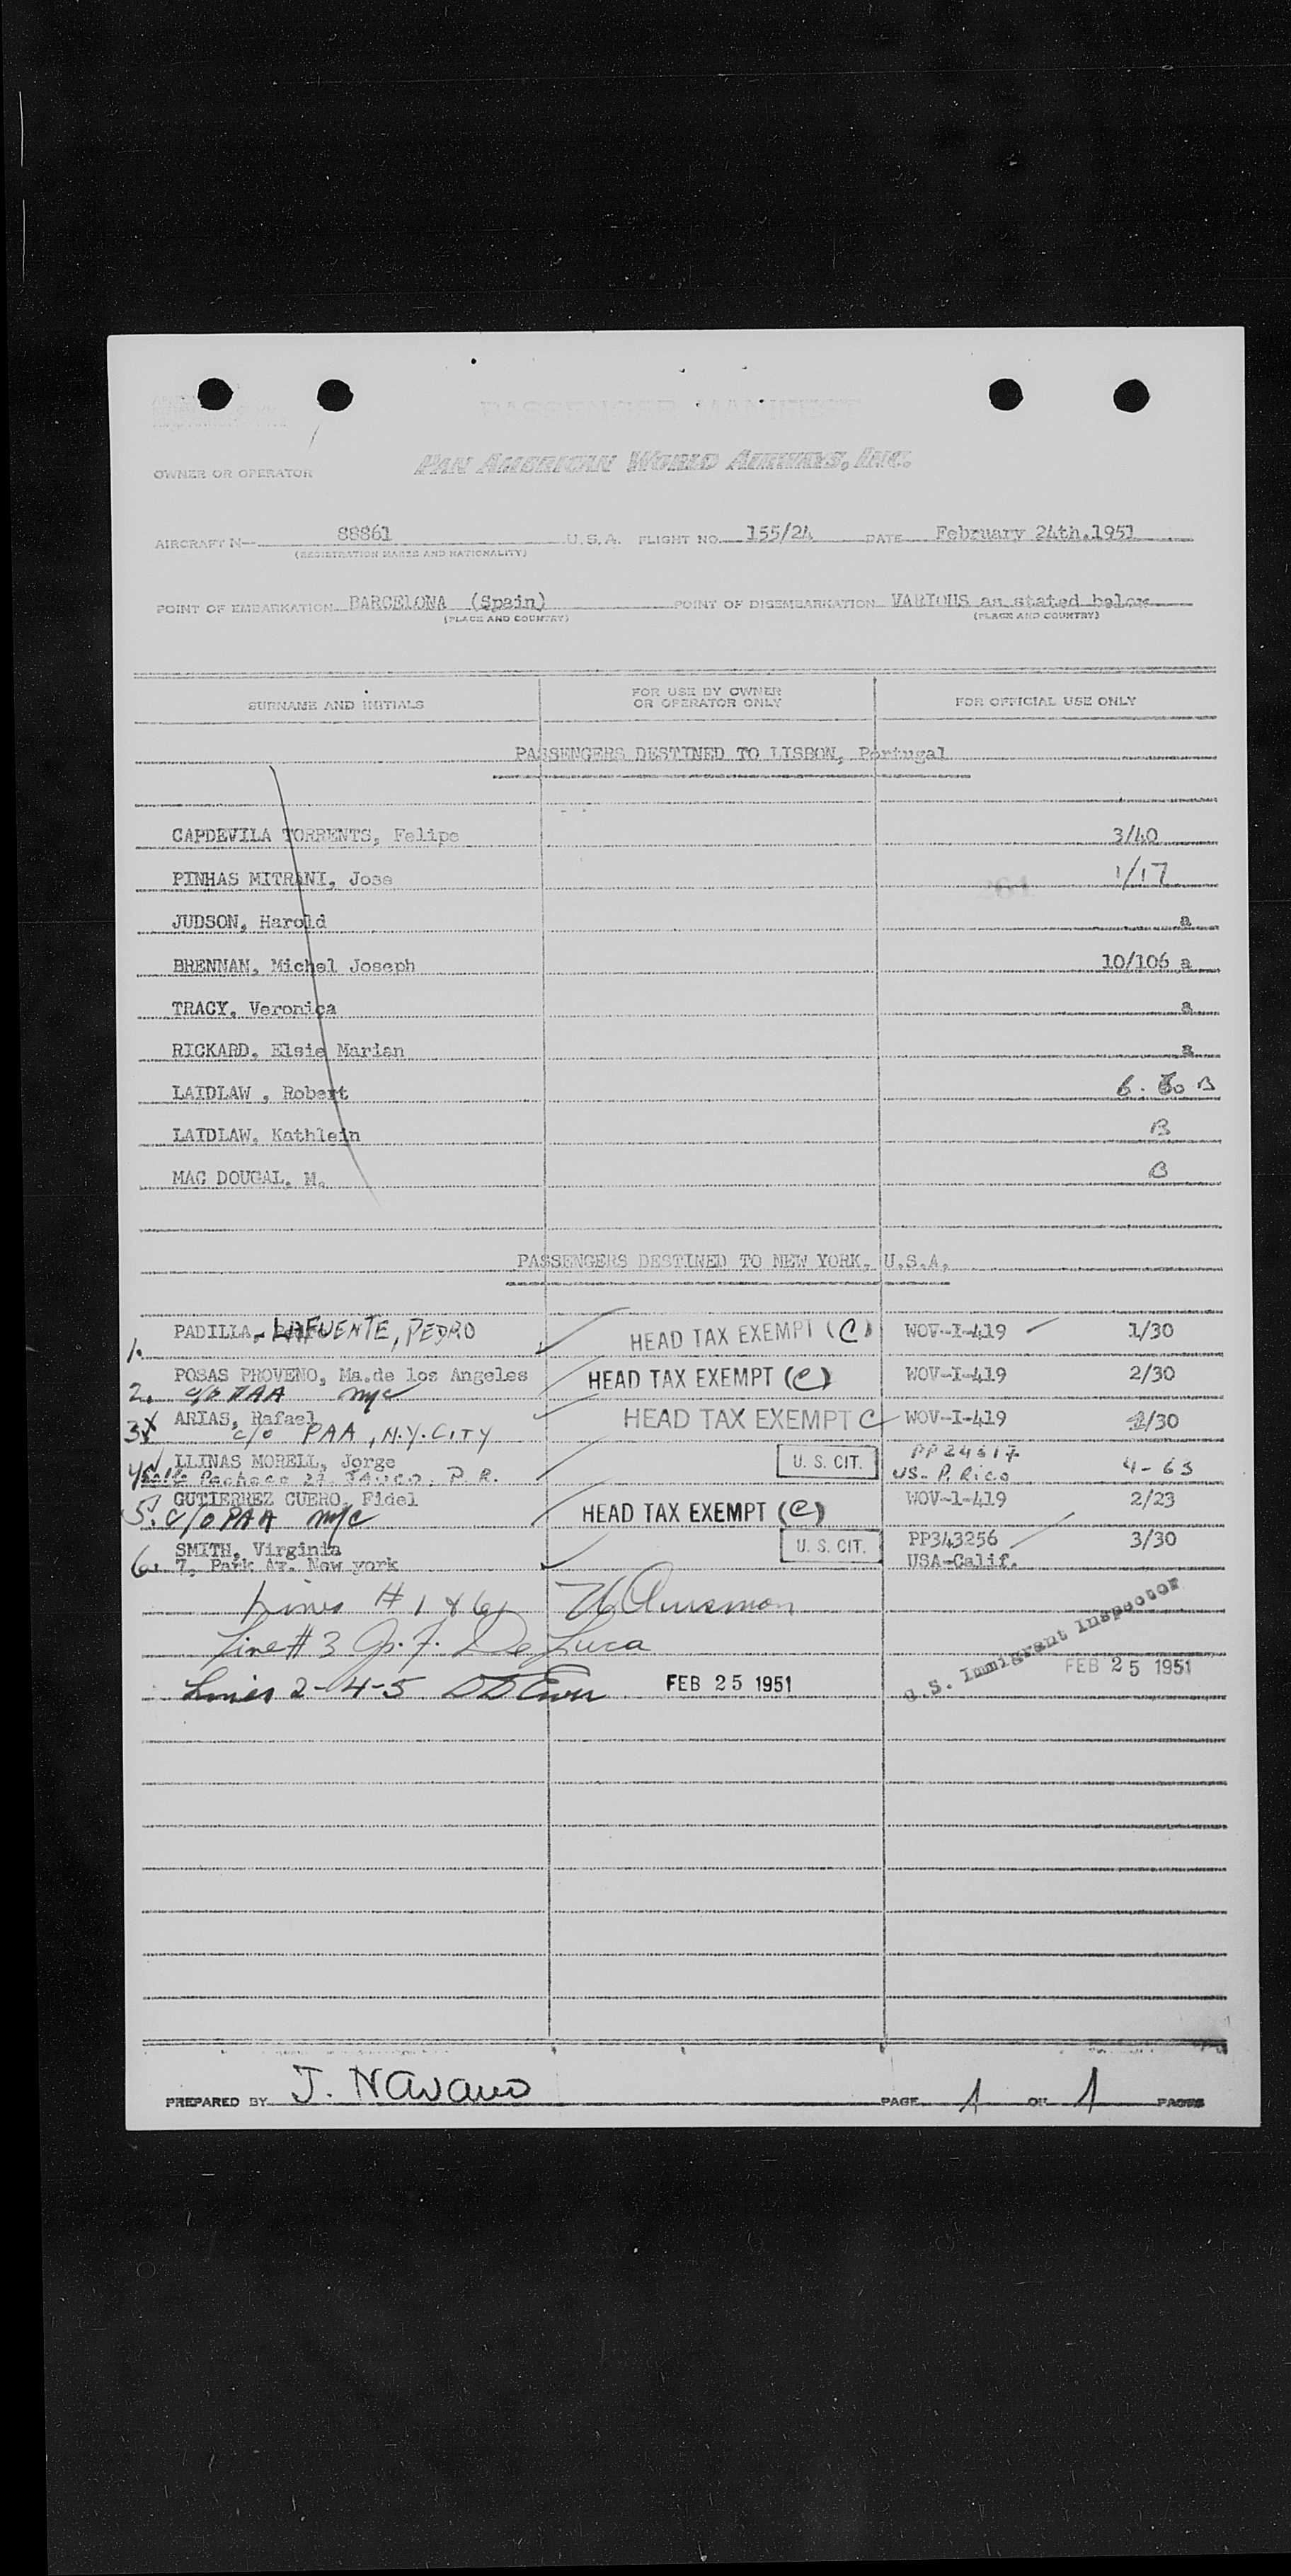 PASSENGER MANIFEST
OWNER OR OPERATOR PAN AMERICAN WORLD AIRWAYS, INC.
AIRCRAFT N— 88861 U.S.A. FLIGHT NO. 155/24 DATE February 24th.1951
(REGISTRATION MARKS AND NATIONALITY)
POINT OF EMBARKATION BARCELONA (Spain) POINT OF DISEMBARKATION VARIOUS as stated below
(PLACE AND COUNTRY) (PLACE AND COUNTRY)
SURNAME AND INITIALS FOR USE BY OWNER OR OPERATOR ONLY FOR OFFICIAL USE ONLY
PASSENGERS DESTINED TO LISBON, Portugal
CAPDEVILA TORRENTS, Felipe 3/40
PINHAS MITRANI, Jose 1/17
JUDSON, Harold a
BRENNAN, Michel Joseph 10/106 a
TRACY, Veronica a
RICKARD, Elsie Marian a
LAIDLAW , Robert B
LAIDLAW, Kathlein B
MAC DOUGAL, M. B
PASSENGERS DESTINED TO NEW YORK, U.S.A.
1. PADILLA - LAFUENTE, PEDRO HEAD TAX EXEMPT (C) WOV-I-419 1/30
POSAS PROVENO, Ma.de los Angeles HEAD TAX EXEMPT (C) WOV-I-419 2/30
2. c/o PAA NYC
ARIAS, Rafael HEAD TAX EXEMPT C WOV-I-419 /30
3 X c/o PAA, N.Y. CITY
LLINAS MORELL, Jorge U. S. CIT. PP 24617 4-63
4 Pacheco 27. P. R. US- P. Rico
GUTIERREZ CUERO, Fidel WOV-1-419 2/23
5. c/o PAA NYC HEAD TAX EXEMPT (C)
SMITH, Virginia U. S. CIT. PP343256 3/30
6. 7, Park Av. New york USA-Calif.
Lines # 1 & 6
Line # 3 De Luca
Lines 2-4-5 FEB 25 1951
U.S. Immigrant Inspector
FEB 25 1951
PREPARED BY J. Navarro PAGE 1 OF 1 PAGES